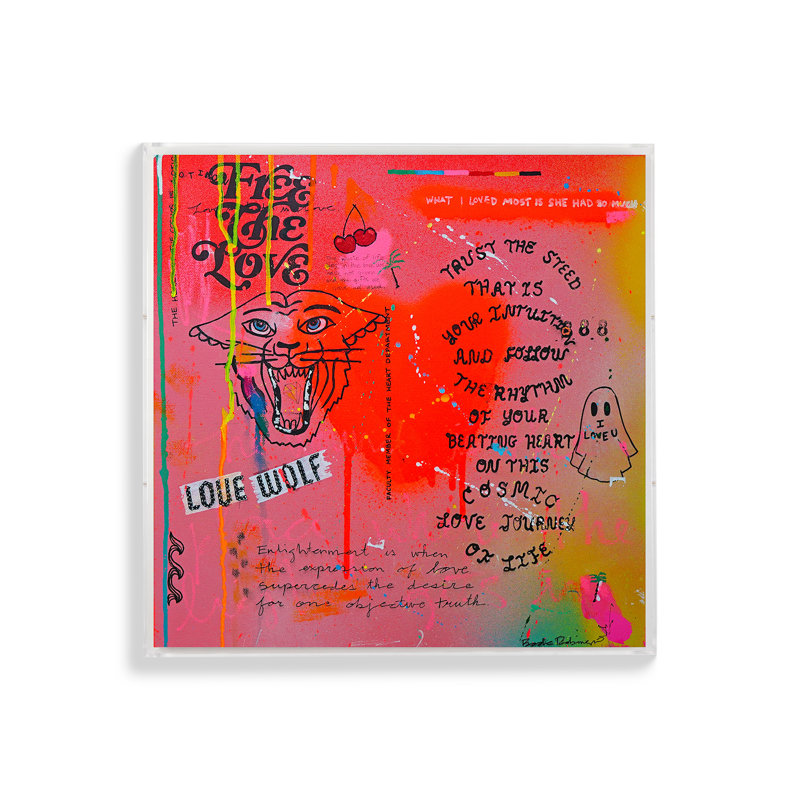 FREE
THE
LOVE
WHAT I LOVED MOST IS SHE HAD SO MUCH
TRUST THE STEED
THAT IS
YOUR INTUITION
AND FOLLOW
THE RHYTHM
OF YOUR
BEATING HEART
ON THIS
COSMIC
LOVE JOURNEY
OF LIFE
8.8.8.
I
LOVE U
FACULTY MEMBER OF THE HEART DEPARTMENT
LOVE WOLF
Enlightenment is when
the expression of love
supercedes the desire
for one objective truth.